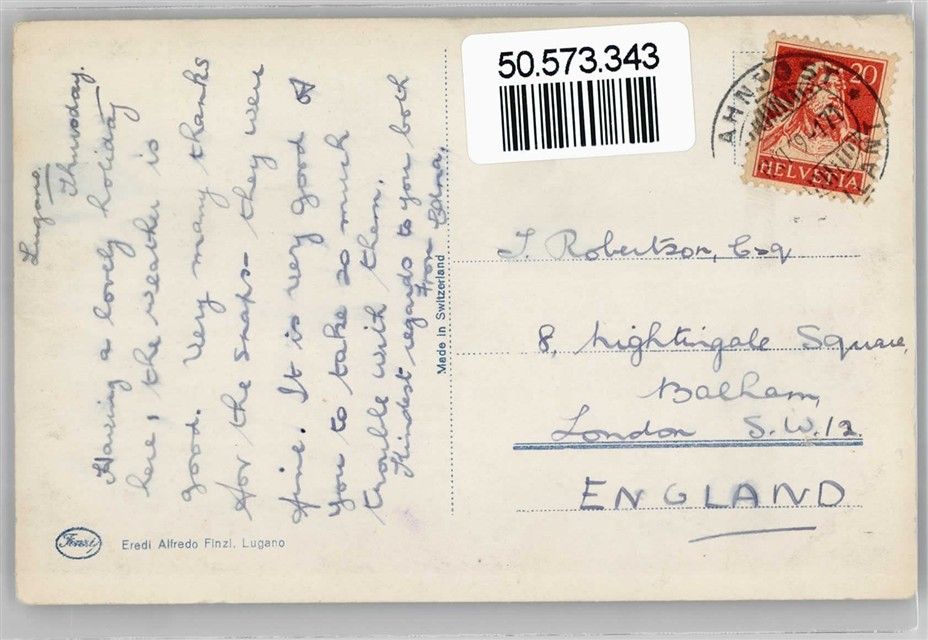 Lugano
Thursday.
Having a lovely holiday
here, the weather is
good. Very many thanks
for the snaps - they were
fine. It is very good of
you to take so much
trouble with them.
Kindest regards to you both
From Edna.
Made in Switzerland
Finzi
Eredi Alfredo Finzi, Lugano
50.573.343
20
HELVETIA
J. Robertson, Esq
8, Nightingale Square,
Balham,
London S.W.12
ENGLAND